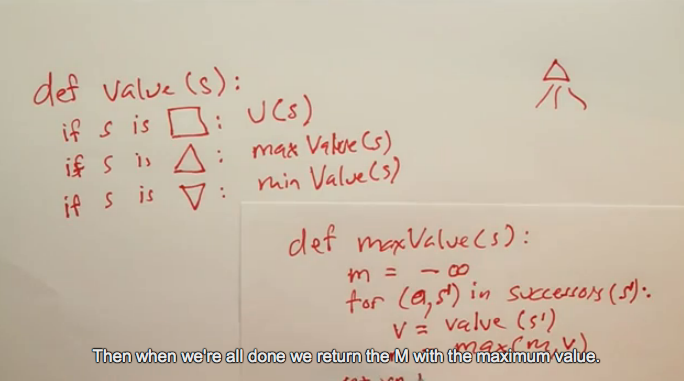 def value(s):
if s is □: U(s)
if s is △: maxValue(s)
if s is ▽: minValue(s)
def maxValue(s):
m = -∞
for (a,s') in successors(s'):
v = value(s')
max(m,v)
Then when we're all done we return the M with the maximum value.